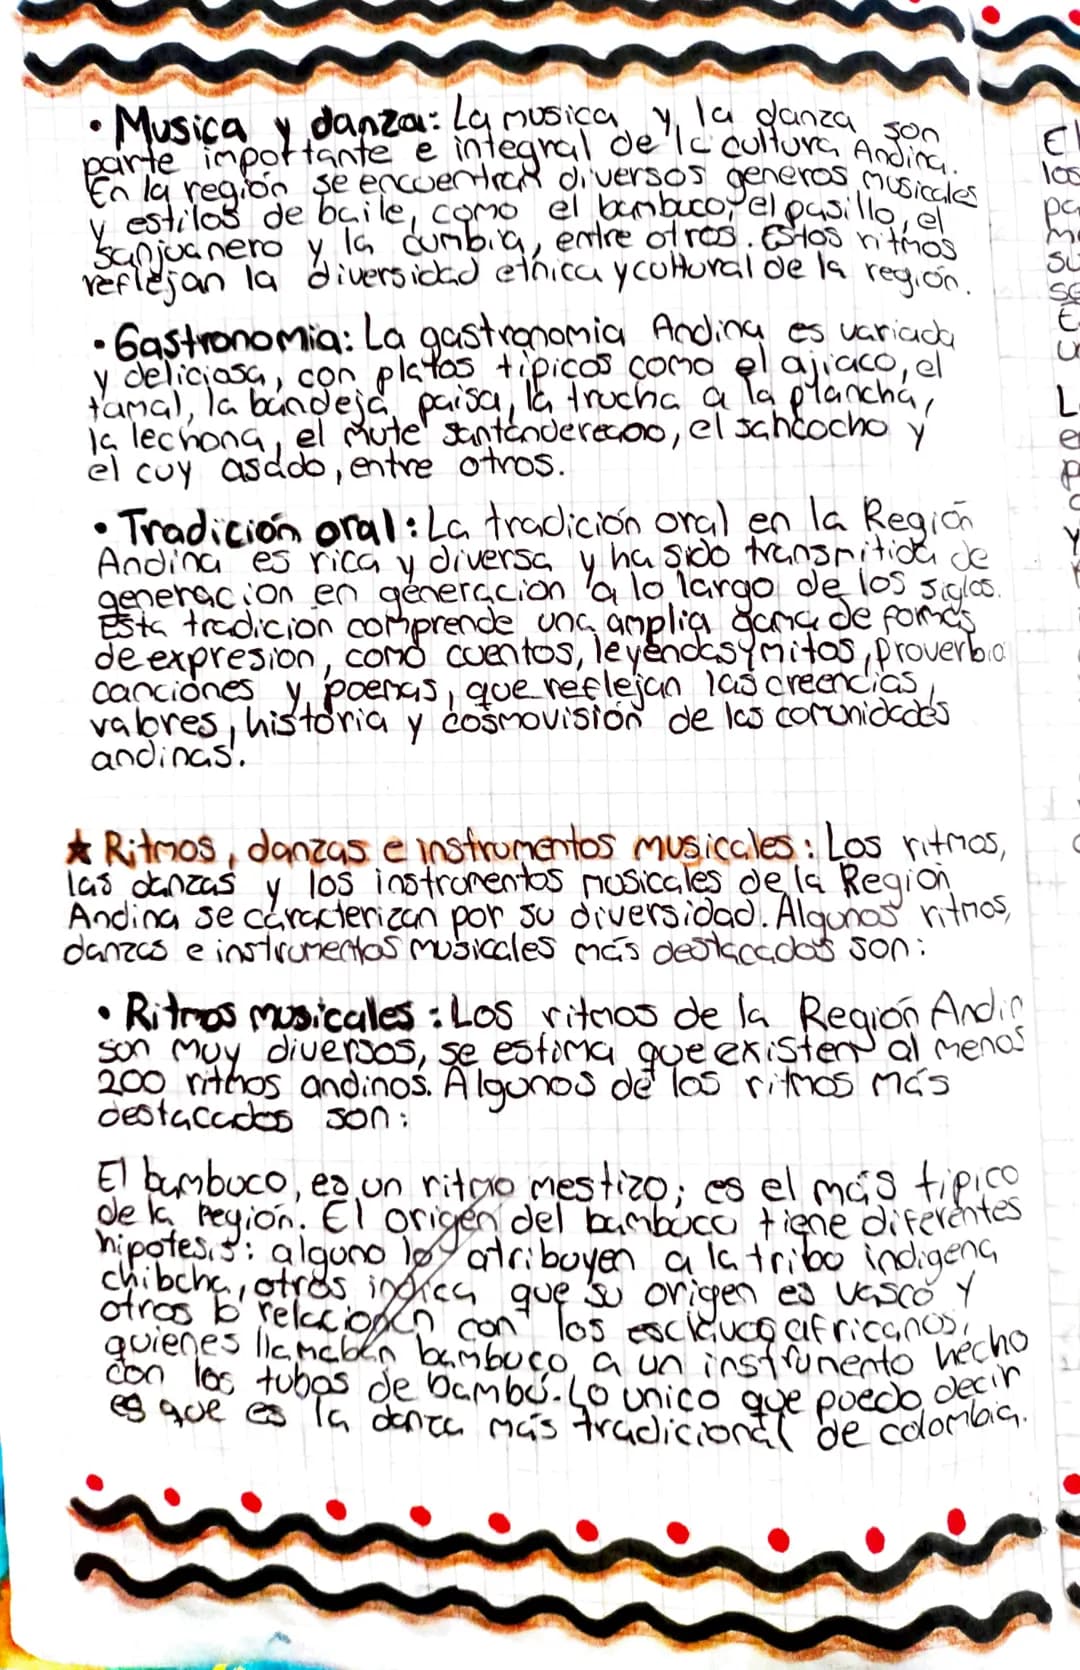 • Musica y danza: La musica y la danza son
parte importante e integral de la cultura Andina.
En la región se encuentran diversos generos musicales
y estilos de baile, como el bambuco, el pasillo, el
sanjuanero y la cumbia, entre otros. Estos ritmos
reflejan la diversidad etnica y cultural de la región.
• Gastronomia: La gastronomia Andina es variada
y deliciosa, con platos tipicos como el ajiaco, el
tamal, la bandeja paisa, la trucha a la plancha,
la lechona, el mute, el sancocho y
el cuy asado, entre otros.
• Tradición oral: La tradición oral en la Región
Andina es rica y diversa y ha sido transmitida de
generacion en generacion a lo largo de los siglos.
Esta tradicion comprende una amplia gama de formas
de expresion, como cuentos, leyendas y mitos, proverbio
canciones y poemas, que reflejan las creencias,
valores, historia y cosmovisión de las comunidades
andinas.
★ Ritmos, danzas e instrumentos musicales: Los ritmos,
las danzas y los instrumentos musicales de la Region
Andina se caracterizan por su diversidad. Algunos ritmos,
danzas e instrumentos musicales más destacados son:
• Ritmos musicales: Los ritmos de la Región Andin
son muy diversos, se estima que existen al menos
200 ritmos andinos. Algunos de los ritmos más
destacados son:
El bambuco, es un ritmo mestizo; es el más tipico
de la region. El origen del bambuco tiene diferentes
hipotesis: alguno lo atribuyen a la tribo indigena
chibcha, otros indica que su origen es vasco y
otros lo relacionan con los esclavos africanos,
quienes llamaban bambuco a un instrumento hecho
con los tubos de bambú. Lo unico que puedo decir
es que es la danza más tradicional de colombia.
El
los